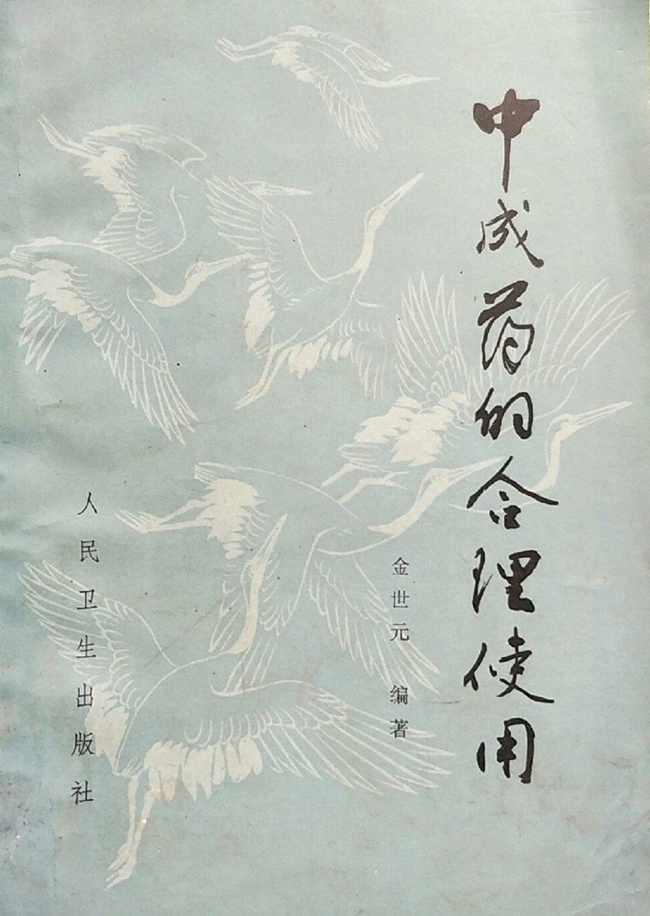 中成药的合理使用
金世元 编著
人民卫生出版社